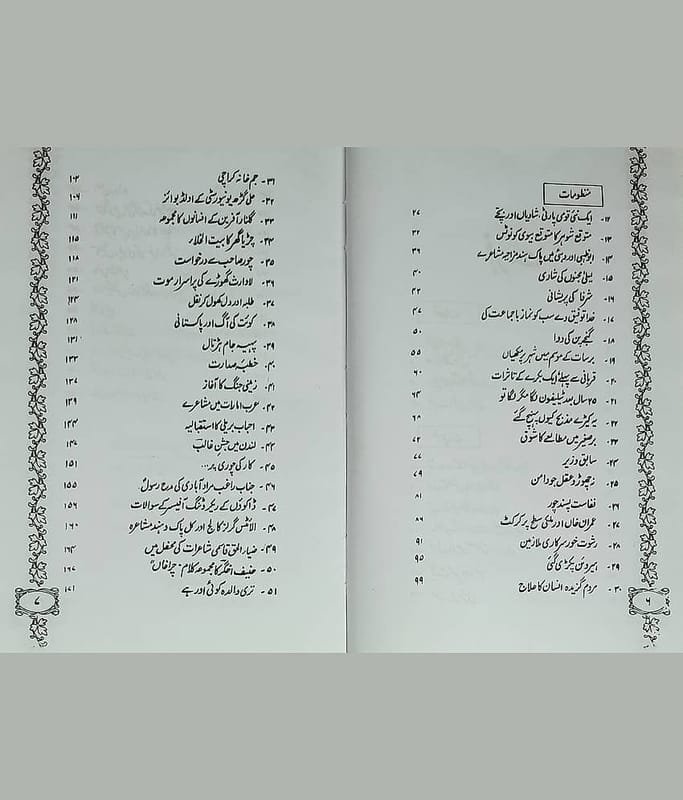 منظومات
۱۲۔ ایک نئی قومی پارٹی، شادیاں اور پتّے ۲۷
۱۳۔ متوقع شوہر کا متوقع بیوی کو نوٹس ۳۲
۱۴۔ ابوظہبی اور دبئی میں پاک ہند مزاحیہ مشاعرے ۳۹
۱۵۔ لیلیٰ مجنوں کی شادی ۴۰
۱۶۔ شرفا کی پریشانی ۴۲
۱۷۔ خدا توفیق دے سب کو نماز باجماعت کی ۴۷
۱۸۔ گنجے پن کی دوا ۵۰
۱۹۔ برسات کے موسم میں شہر پر مکھیاں ۵۵
۲۰۔ قربانی سے پہلے ایک بکرے کے تاثرات ۶۰
۲۱۔ ۲۵ سال بعد ٹیلیفون لگا مگر لگا تو ۶۴
۲۲۔ یہ کیڑے مذبح کیوں پہنچ گئے ۶۸
۲۳۔ برصغیر میں مطالعے کا شوق ۷۲
۲۴۔ سابق وزیر ۷۷
۲۵۔ نہ چھوڑو عقل جو دامن ۷۹
۲۶۔ نفاست پسند چور ۸۱
۲۷۔ عمران خاں اور ملکی سطح پر کرکٹ ۸۶
۲۸۔ رشوت خور سرکاری ملازمین ۹۱
۲۹۔ ہیروئن پکڑی گئی ۹۵
۳۰۔ مردم گزیدہ انسان کا علاج ۹۹
۶
۳۱۔ جم خانہ کراچی ۱۰۲
۳۲۔ علی گڑھ یونیورسٹی کے اولڈ بوائز ۱۰۶
۳۳۔ گلنار آفرین کے افسانوں کا مجموعہ ۱۱۱
۳۴۔ چڑیا گھر کا بیت الخلاء ۱۱۵
۳۵۔ چور صاحب سے درخواست ۱۱۸
۳۶۔ لاوارث گھوڑے کی پراسرار موت ۱۲۱
۳۷۔ طلبہ اور دل کھول کر نقل ۱۲۴
۳۸۔ کویت کی آگ اور پاکستانی ۱۲۸
۳۹۔ پہیہ جام ہڑتال ۱۳۱
۴۰۔ خطبۂ صدارت ۱۳۳
۴۱۔ زمینی جنگ کا آغاز ۱۳۷
۴۲۔ عرب امارات میں مشاعرے ۱۳۹
۴۳۔ احباب بریلی کا استقبالیہ ۱۴۴
۴۴۔ لندن میں جشنِ غالب ۱۴۸
۴۵۔ کار کی چوری پر... ۱۵۱
۴۶۔ جناب راغب مراد آبادی کی مدح رسولؐ ۱۵۵
۴۷۔ ڈاکوؤں کے ریکروٹنگ آفیسر کے سوالات ۱۵۶
۴۸۔ الائنس گرلز کالج اور کل پاک و ہند مشاعرہ ۱۶۰
۴۹۔ ضیاء الحق قاسمی شاعرات کی محفل میں ۱۶۴
۵۰۔ حنیف اخگر کا مجموعہ کلام "چراغاں" ۱۶۷
۵۱۔ تری والدہ کوئی اور ہے ۱۷۱
۷